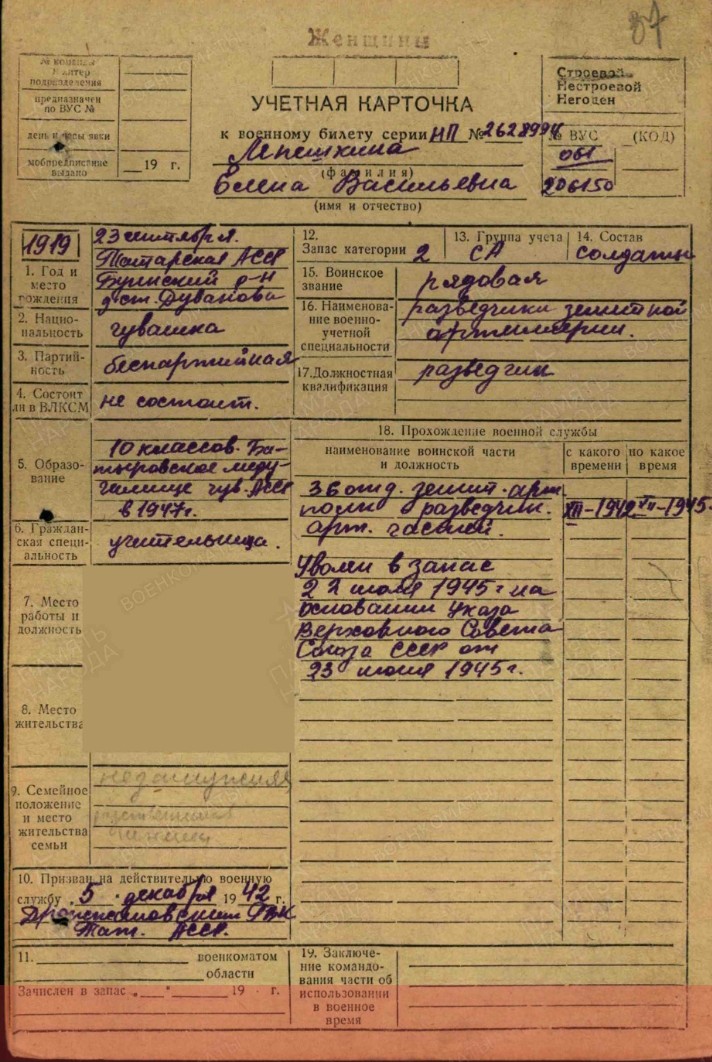 Женщины
37
№ команды
и литер
подразделения
предназначен
по ВУС №
день и часы явки
мобпредписание
выдано
19 г.
Строевой
Нестроевой
Негоден
УЧЕТНАЯ КАРТОЧКА
к военному билету серии НП № 2628994
№ ВУС (КОД)
061
206150
Лепешкина
(фамилия)
Елена Васильевна
(имя и отчество)
1919
1. Год и
место
рождения
23 сентября.
Татарская АССР
Буинский р-н
д. ст. Дуваново
2. Нацио-
нальность
чувашка
3. Партий-
ность
беспартийная
4. Состоит
ли в ВЛКСМ
не состоит.
5. Образо-
вание
10 классов. Ба-
тыревское педу-
чилище чув. АССР
в 1947г.
6. Граждан-
ская специ-
альность
учительница.
7. Место
работы и
должность
8. Место
жительства
9. Семейное
положение
и место
жительства
семьи
незамужняя
10. Призван на действительную военную
службу 5 декабря 1942 г.
Дрожжановским РВК
Тат. АССР.
11. военкоматом
области
Зачислен в запас „ “ 19 г.
12.
Запас категории 2
13. Группа учета
СА
14. Состав
солдаты
15. Воинское
звание
рядовая
16. Наименова-
ние военно-
учетной
специальности
разведчики зенитной
артиллерии.
17. Должностная
квалификация
разведчик
18. Прохождение военной службы
наименование воинской части
и должность
с какого
времени
по какое
время
36 отд. зенит. арт
полк разведчик.
арт. частей.
XII-1942
VII-1945.
Уволен в запас
22 июля 1945 г на
основании Указа
Верховного Совета
Союза СССР от
23 июня 1945г.
19. Заключе-
ние командо-
вания части об
использовании
в военное
время